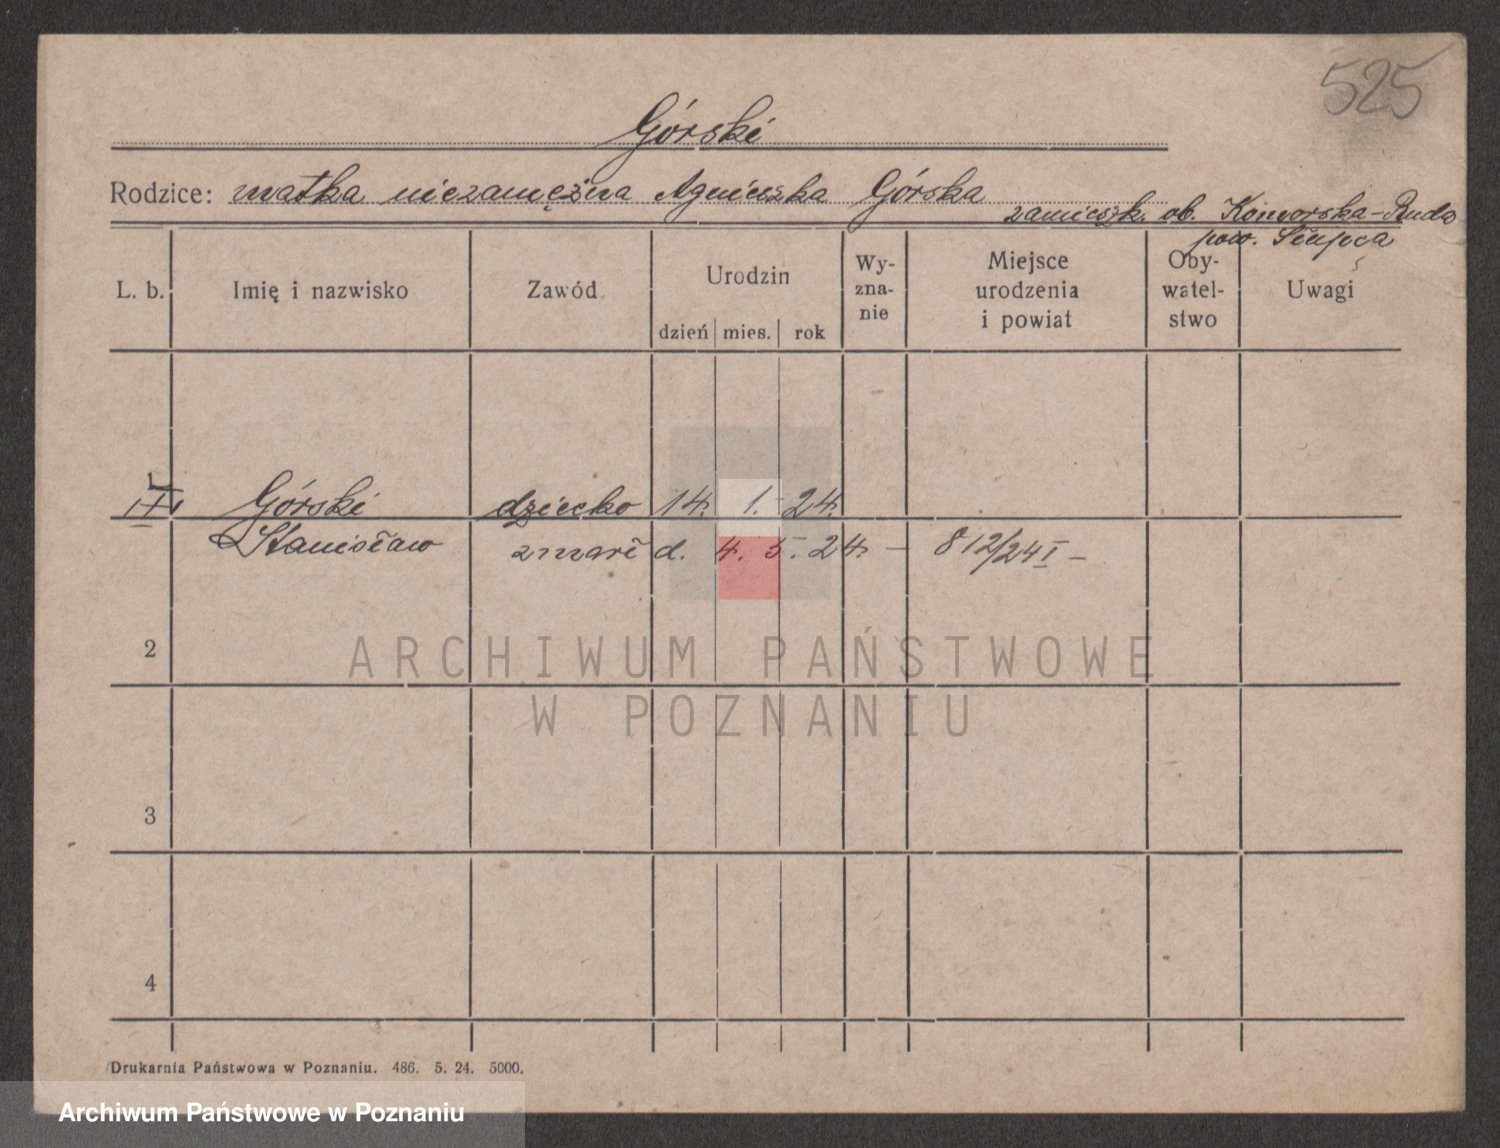 525
Górski
Rodzice: matka niezamężna Agnieszka Górska
zamieszk. ob. Komorska-Ruda
pow. Słupca
L. b. Imię i nazwisko Zawód Urodzin Wy-zna-nie Miejsce urodzenia i powiat Oby-watel-stwo Uwagi
dzień mies. rok
1 Górski dziecko 14. 1. 24.
Stanisław zmarł d. 4. 5. 24. – 812/24 I –
2
3
4
Drukarnia Państwowa w Poznaniu. 486. 5. 24. 5000.
ARCHIWUM PAŃSTWOWE
W POZNANIU
Archiwum Państwowe w Poznaniu